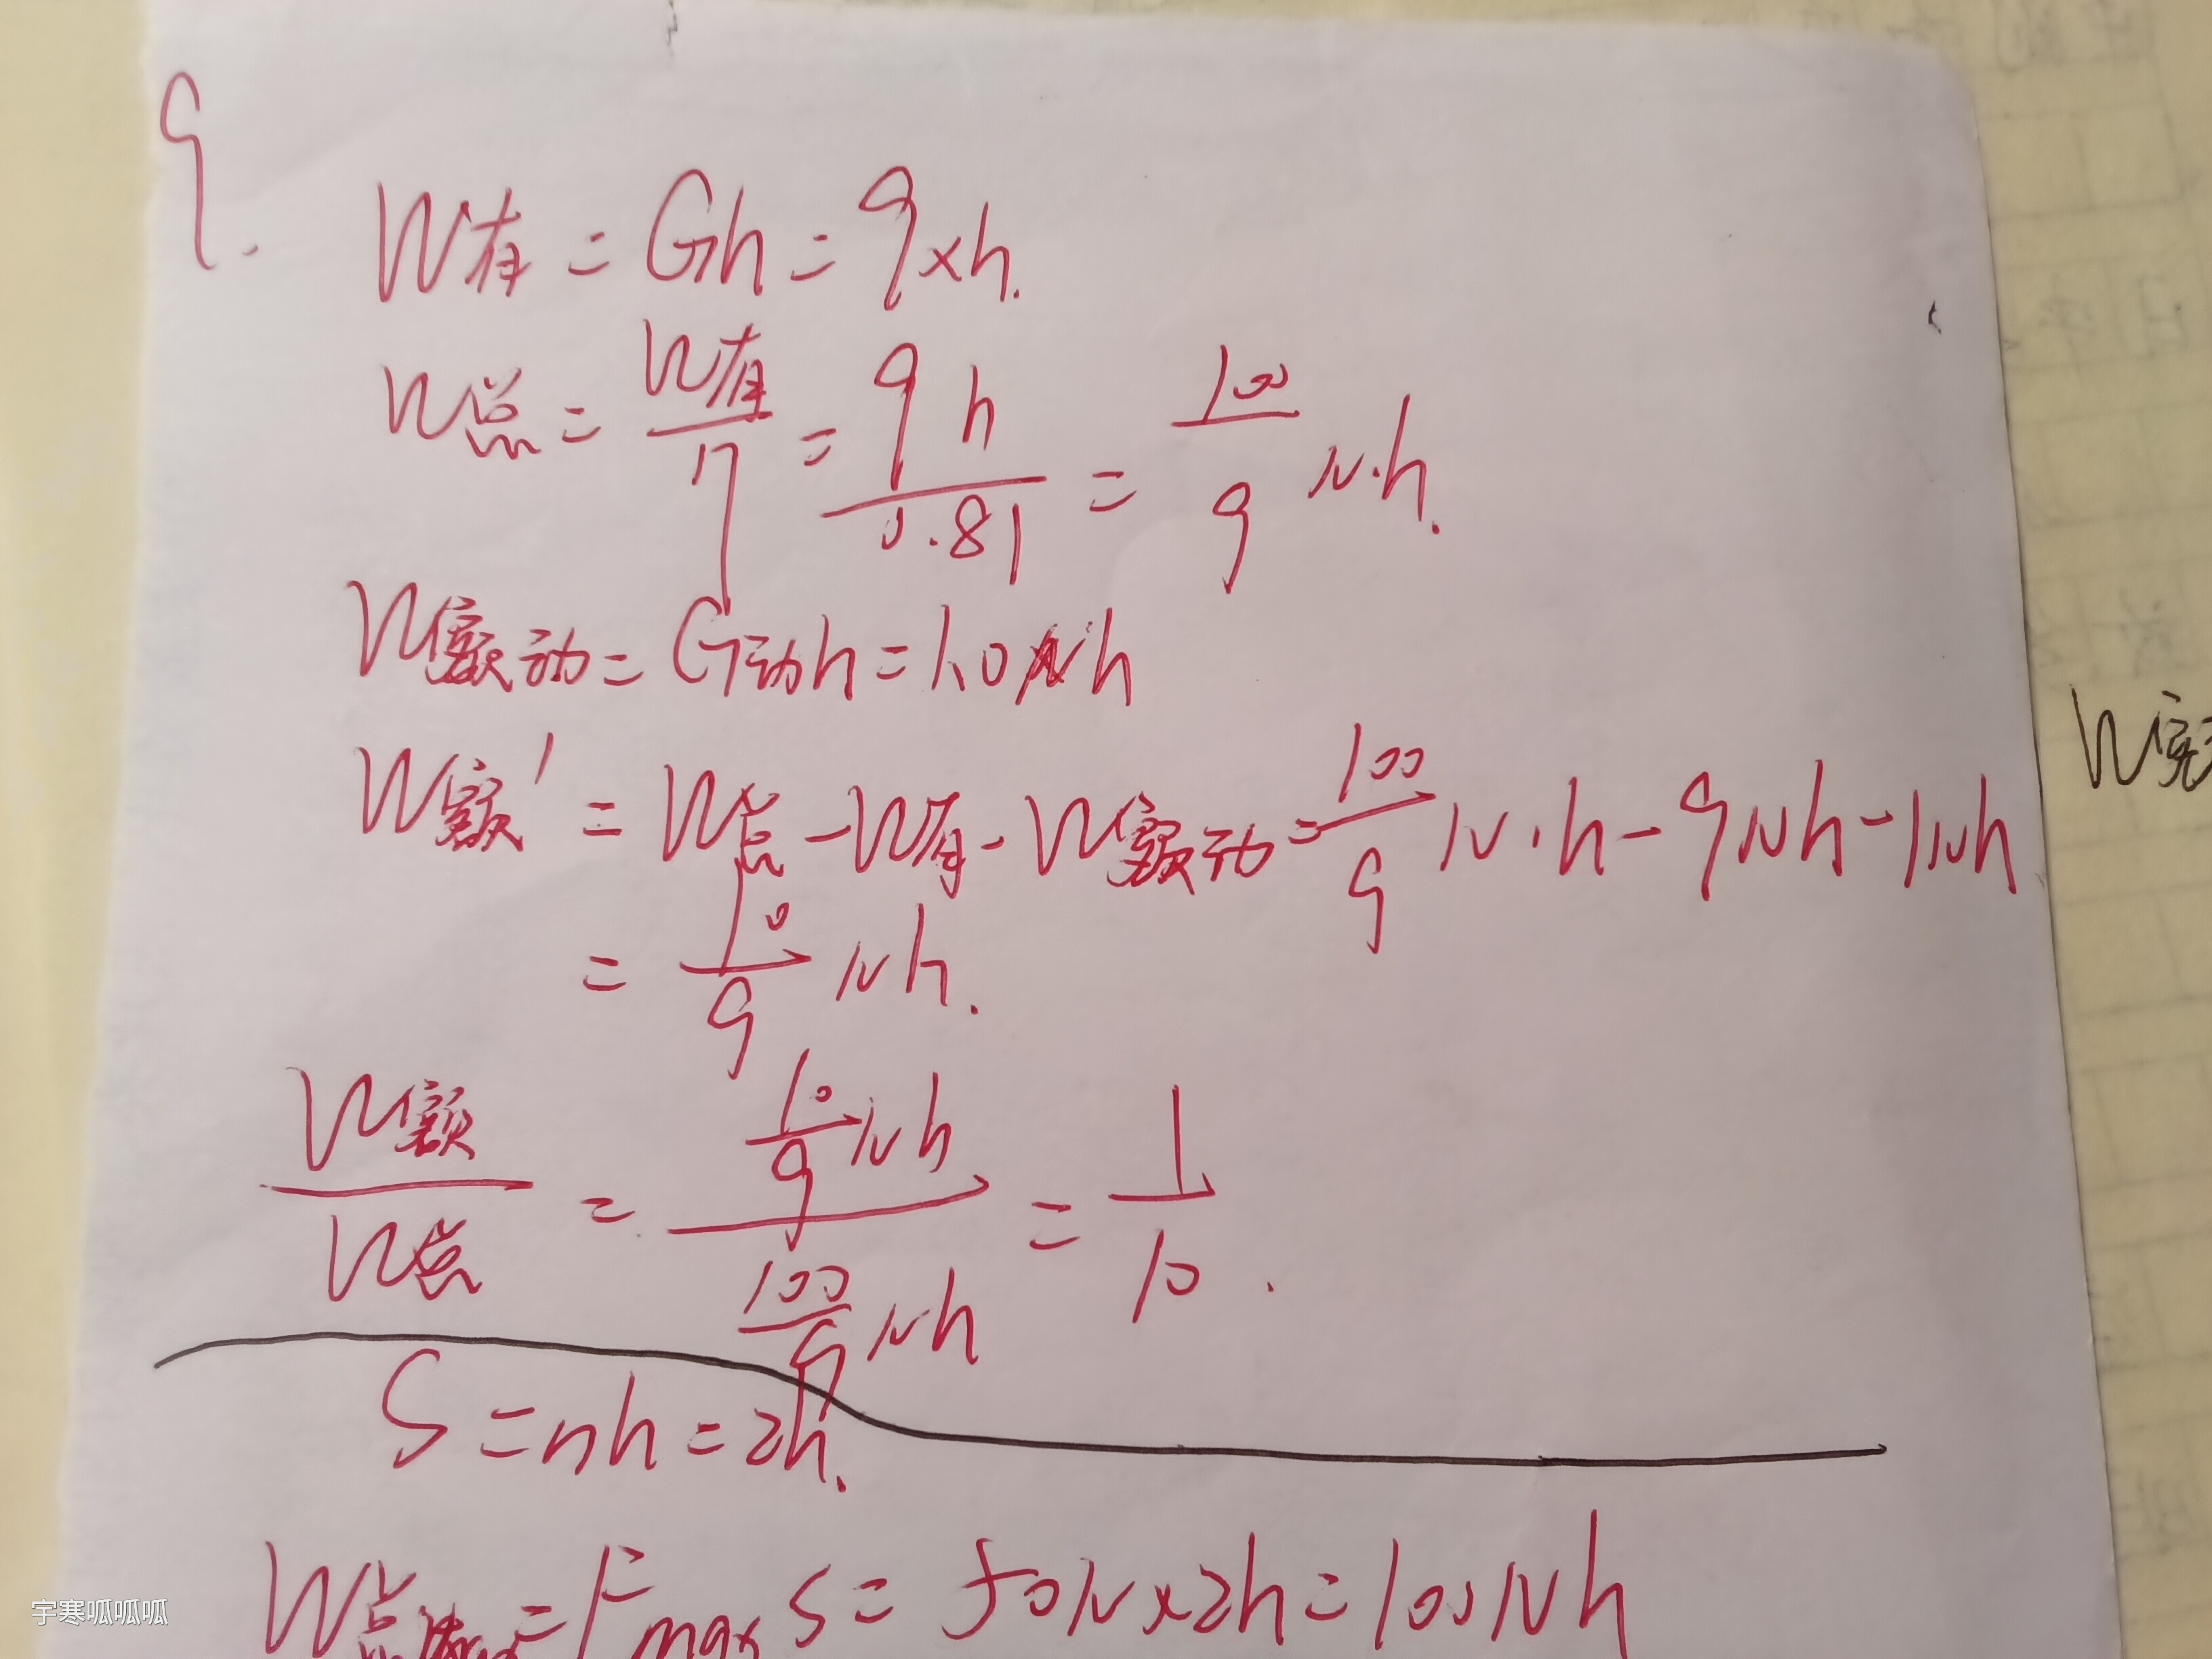 9.
W有 = Gh = 9×h.
W总 = W有/η = 9h/0.81 = 100/9 N·h.
W额动 = G动h = 1.0Nh
W额' = W总 - W有 - W额动 = 100/9 N·h - 9Nh - 1Nh
= 10/9 Nh.
W额/W总 = 10/9 Nh / 100/9 Nh = 1/10.
S = nh = 2h.
W总max = Fmax S = 50N×2h = 100Nh
W额
宇寒呱呱呱